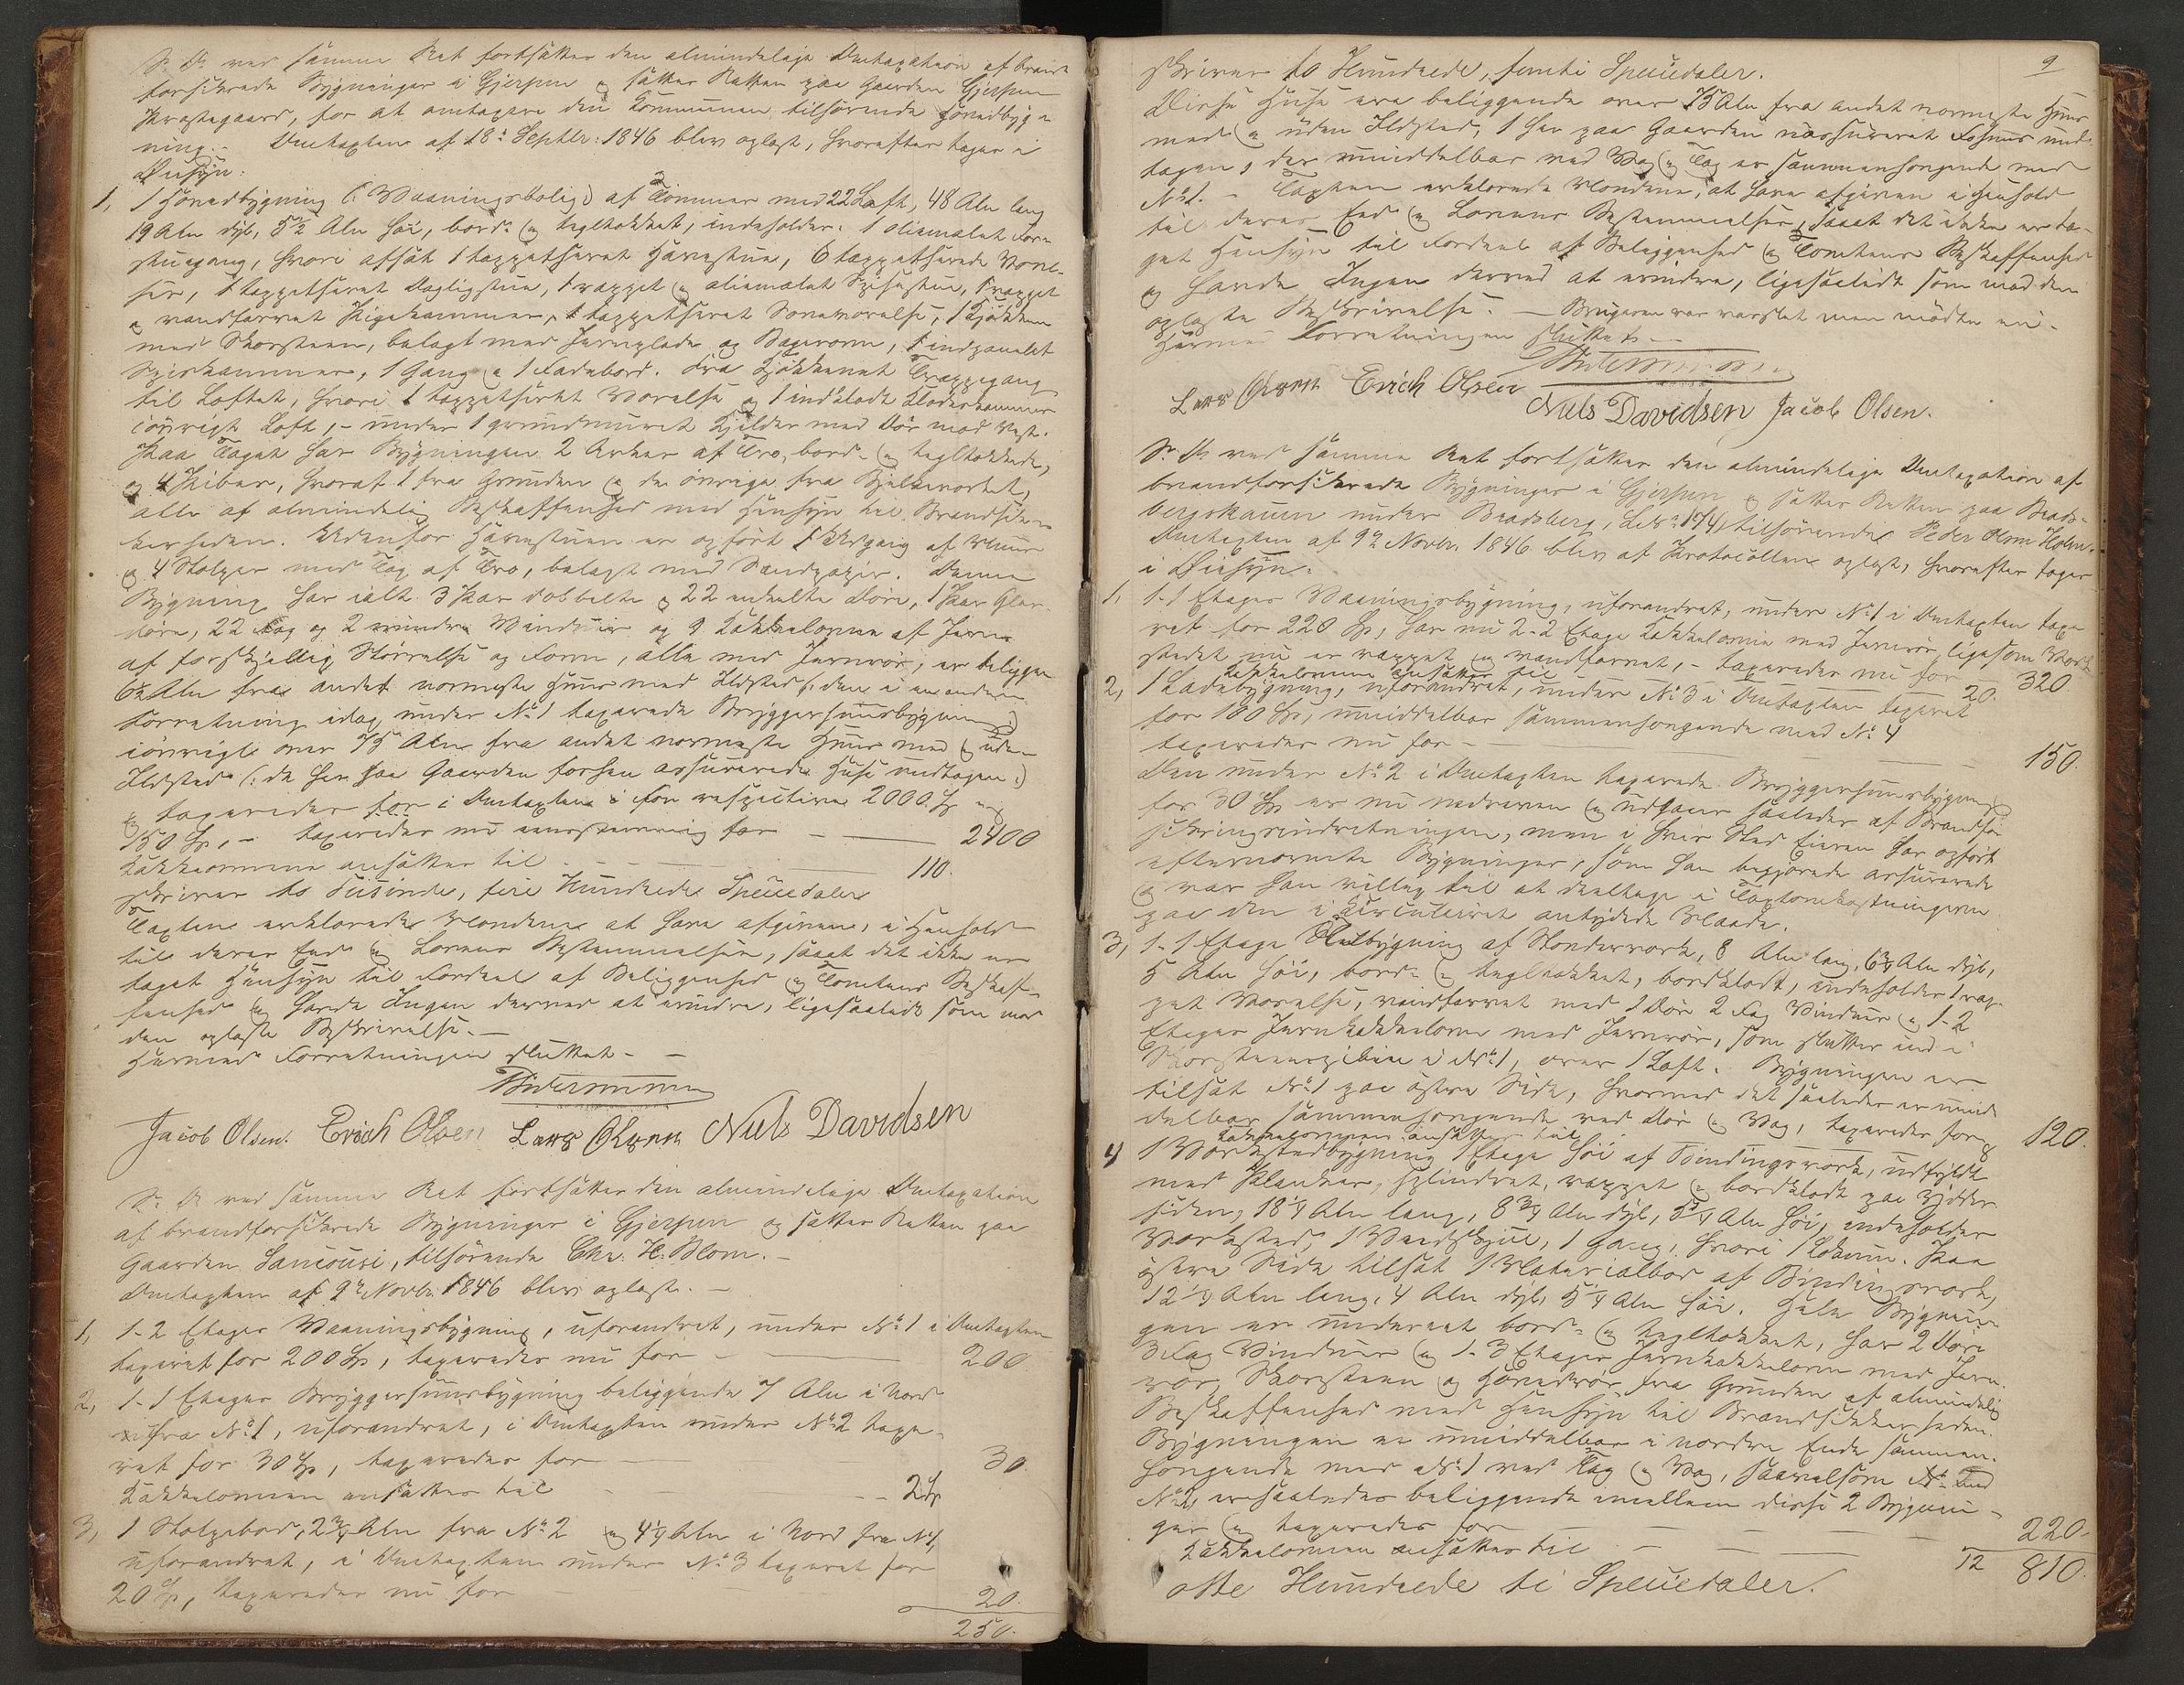 S. D. ved samme Ret fortsattes den almindelige Omtaxation af brand-
forsikrede Bygninger i Gjerpen og sattes Retten paa Gaarden Gjerpen
Præstegaard, for at omtaxere den Kommunen tilhørende Hovedbyg-
ning. Omtaxten af 18de Septbr: 1846 blev oplæst, hvorefter toges i
Øiesyn:
1, 1 Hovedbygning (: Vaaningsbolig :) af Tømmer med 22 Laft, 48 Aln lang
19 Aln dyb, 5½ Aln høi, bord- og tegltækket, indeholder: 1 oliemalet For-
stuegang, hvori afsat 1 tappetseret Havestue, 6 tappetserede Værel-
ser, 1 tappetseret Dagligstue, 1 rappet og oliemalet Spisestue, 1 rappet
og vandfarvet Pigekammer, 1 tappetseret Soveværelse, 1 Kjøkken
med Skorsteen, belagt med Jernplade og Bagerovn, 1 indpanelet
Spiskammer, 1 Gang og 1 Fadebord. Fra Kjøkkenet Trappegang
til Loftet, hvori 1 tappetseret Værelse og 1 indklædt Klædekammer
iøvrigt Loft, - under 1 grundmuret Kjelder med Dør mod Vest.
Paa Taget har Bygningen 2 Arker af Træ, bord- og tegltækkede,
og 4 Piber, hvoraf 1 fra Grunden og de øvrige fra Bjelkeværket,
alle af almindelig Beskaffenhed med Hensyn til Brandsik-
kerheden. Udenfor Havestuen er opført 1 Udgang af Muur
og 4 Stolper med Tag af Træ, belagt med Sandpapir. Denne
Bygning har ialt 3 Par dobbelte og 22 enkelte Døre, 1 Par Glas-
døre, 22 Fag og 2 mindre Vinduer og 9 Kakkelovne af Jern
af forskjellig Størrelse og Form, alle med Jernrør, er beliggen
6½ Aln fra andet nærmeste Huus med Ildsted (: den i en anden
Forretning idag under No 1 taxerede Bryggerhuusbygning :)
iøvrigt over 75 Aln fra andet nærmeste Huus med og uden
Ildsted (: de her paa Gaarden forhen assurerede Huse undtagen :)
og taxeredes før i Omtaxten i for respective 2000 Sp og
150 Sp, - taxeredes nu eenstemmig for - 2400
Kakkelovnene ansattes til - 110.
skriver to Tusinde, fire Hundrede Speciedaler
Taxten erklærede Mændene at have afgiven, i Henhold
til deres Eed og Lovens Bestemmelser, saaat det ikke er
taget Hensyn til Fordeel af Beliggenhed og Tomtens Beskaf-
fenhed og havde Ingen derved at erindre, ligesaalidt som ved
den oplæste Beskrivelse. -
Hermed Forretningen sluttet. -
Jacob Olsen. Erich Olsen Lars Olsen Niels Davidsen
S. D. ved samme Ret fortsattes den almindelige Omtaxation
af brandforsikrede Bygninger i Gjerpen og sattes Retten paa
Gaarden Sancousi, tilhørende Chr. H. Blom. -
Omtaxten af 9de Novbr. 1846 blev oplæst. -
1, 1-2 Etages Vaaningsbygning, uforandret, under No 1 i Omtaxten
taxeret for 200 Sp, taxeredes nu for - 200
2, 1-1 Etages Bryggerhuusbygning beliggende 7 Aln i Nord
fra No 1, uforandret, i Omtaxten under No 2 taxe-
ret for 30 Sp, taxeredes for - 30
Kakkelovnen ansattes til - 2 Sp
3, 1 Stolpebod, 2¾ Aln fra No 2 og 4¼ Aln i Nord fra No 1,
uforandret, i Omtaxten under No 3 taxeret for
20 Sp, taxeredes nu for 20.
250.
9
skriver to Hundrede, femti Speciedaler.
Disse Huse ere beliggende over 75 Aln fra andet nærmeste Huus
med og uden Ildsted, 1 her paa Gaarden uassureret Fæhuus und-
tagen, der umiddelbar ved Væg og Tag er sammenhængende med
No 1. - Taxten erklærede Mændene, at have afgiven i Henhold
til deres Eed og Lovens Bestemmelser, saaat det ikke er ta-
get Hensyn til Fordeel af Beliggenhed og Tomtens Beskaffenhed
og havde Ingen derved at erindre, ligesaalidt som mod den
oplæste Beskrivelse. - Brugeren var varslet men mødte ei.
Hermed Forretningen sluttet. -
Lars Olsen Erich Olsen
Niels Davidsen Jacob Olsen.
S. D. ved samme Ret fortsattes den almindelige Omtaxation af
brandforsikrede Bygninger i Gjerpen og sattes Retten paa Brads-
bergskaaen under Bradsberg, (L. No 174) tilhørende Peder Olsen Holm.
Omtaxten af 9de Novbr. 1846 blev af Protocollen oplæst, hvorefter toges
i Øiesyn:
1, 1-1 Etages Vaaningsbygning, uforandret, under No 1 i Omtaxten taxe-
ret for 220 Sp, har nu 2-2 Etages Kakkelovne med Jernrør, ligesom Værk-
stedet nu er rappet og vandfarvet, - taxeredes nu for 320
Kakkelovnene ansattes til 20.
2, 1 Ladebygning, uforandret, under No 3 i Omtaxten taxeret
for 100 Sp, umiddelbar sammenhængende med No 4
taxeredes nu for - 150.
Den under No 2 i Omtaxten taxerede Bryggerhuusbygning
for 30 Sp er nu nedreven og udgaaer saaledes af Brandfor-
sikringsindretningen, men i hvis Sted Eieren har opført
efternævnte Bygninger, som han begjærede assurerede
og var han villig til at deeltage i Taxtomkostningerne
paa den i Circulairet antydede Maade.
3, 1-1 Etage Bygning af Stenderværk, 8 Aln lang, 6¾ Aln dyb,
5 Aln høi, bord- og tegltækket, bordklædt, indeholder 1 rap-
pet Værelse, vandfarvet med 1 Dør 2 Fag Vinduer og 1-2
Etages Jernkakkelovn med Jernrør, som slutter ind i
Skorsteenspiben i No 1, over 1 Loft. Bygningen er
tilsat No 1 paa østre Side, hvormed det saaledes er umid-
delbar sammenhængende ved Dør og Væg, taxeredes for 120.
Kakkelovnen ansattes til 8
4 1 Værkstedbygning 1 Etage høi af Bindingsværk, udfyldt
med Planker, splindret, rappet og bordklædt paa Yder-
siden, 18¼ Aln lang, 8¾ Aln dyb, 5¼ Aln høi, indeholder
Værksted, 1 Vedskjul, 1 Gang, hvori 1 Lokum. Paa
østre Side tilsat 1 Materialbod af Bindingsværk,
12¼ Aln lang, 4 Aln dyb, 5¼ Aln høi. Hele Bygnin-
gen er undereet bord- og tegltækket, har 2 Døre
3 Fag Vinduer og 1-3 Etages Jernkakkelovn med Jern-
rør, Skorsteen og Hovedrør fra Grunden af almindelig
Beskaffenhed med Hensyn til Brandsikkerheden.
Bygningen er umiddelbar i nordre Ende sammen-
hængende med No 1 ved Tag og Væg, saavelsom
No 2, er saaledes beliggende imellem disse 2 Bygnin-
ger og taxeredes for - 220.
Kakkelovnen ansattes til - 12 810.
otte Hundrede ti Speciedaler.